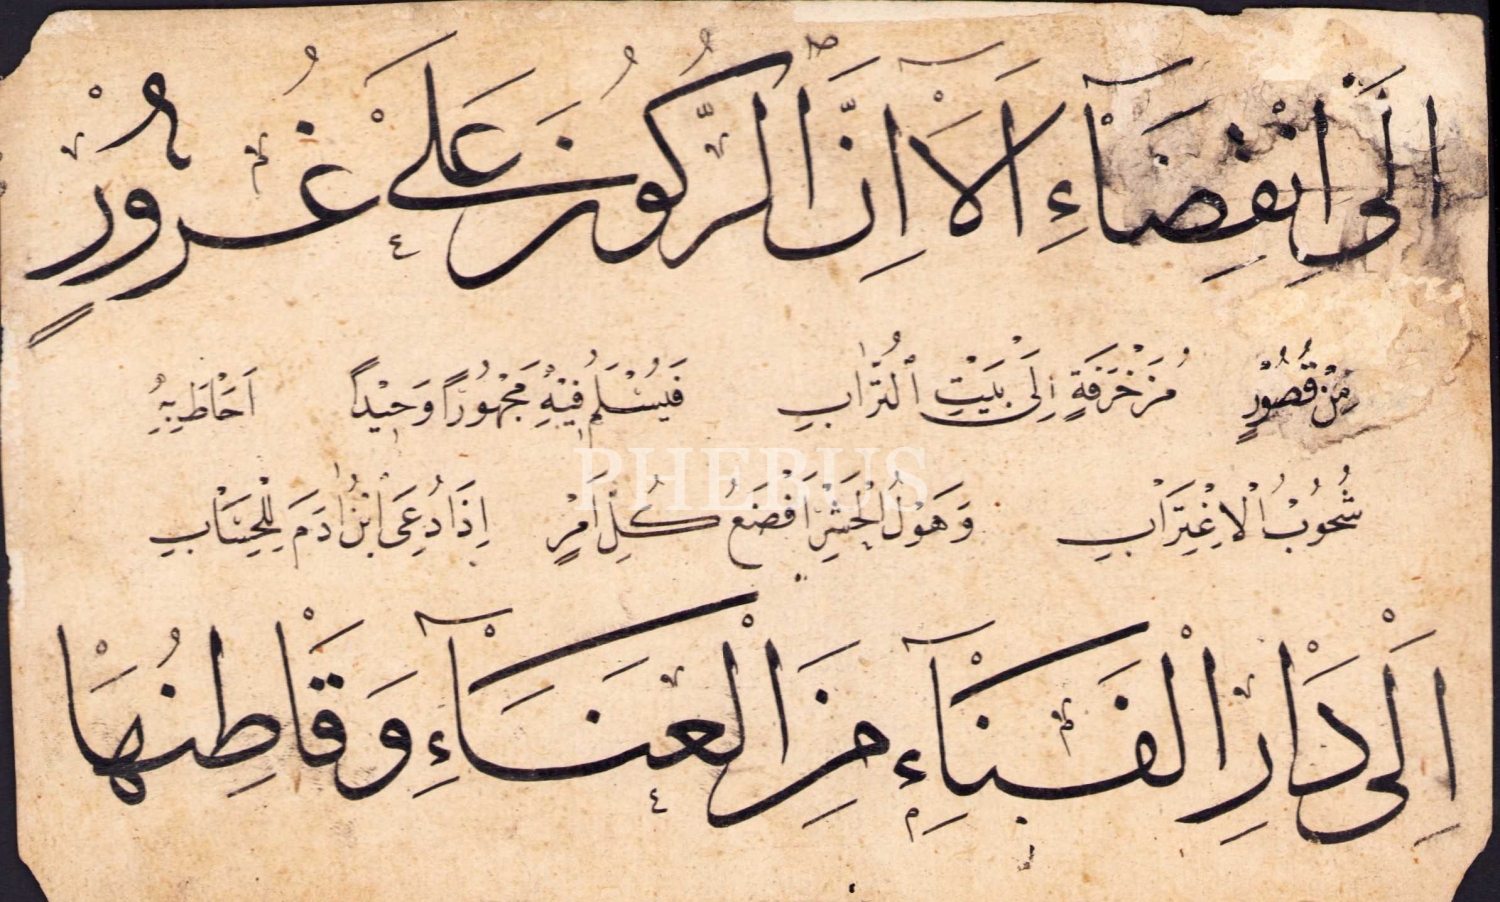 اِلَى انْقِضَآءِ اَلَا اِنَّ الرُّكُونَ عَلَى غُرُورٍ
مِنْ قُصُورٍ مُزَخْرَفَةٍ اِلَى بَيْتِ التُّرَابِ فَيُسْلَمُ فِيْهِ مَجْهُورًا وَحِيْدًا اَحَاطَ بِهِ
شُحُوبُ الْاِغْتِرَابِ وَهَوْلُ الْحَشْرِ اَفْضَعُ كُلِّ اَمْرٍ اِذَا دُعِىَ ابْنُ اٰدَمَ لِلْحِسَابِ
اِلَى دَارِ الْفَنَآءِ مِنَ الْعَنَآءِ وَقَاطِنُهَا
PHEBUS